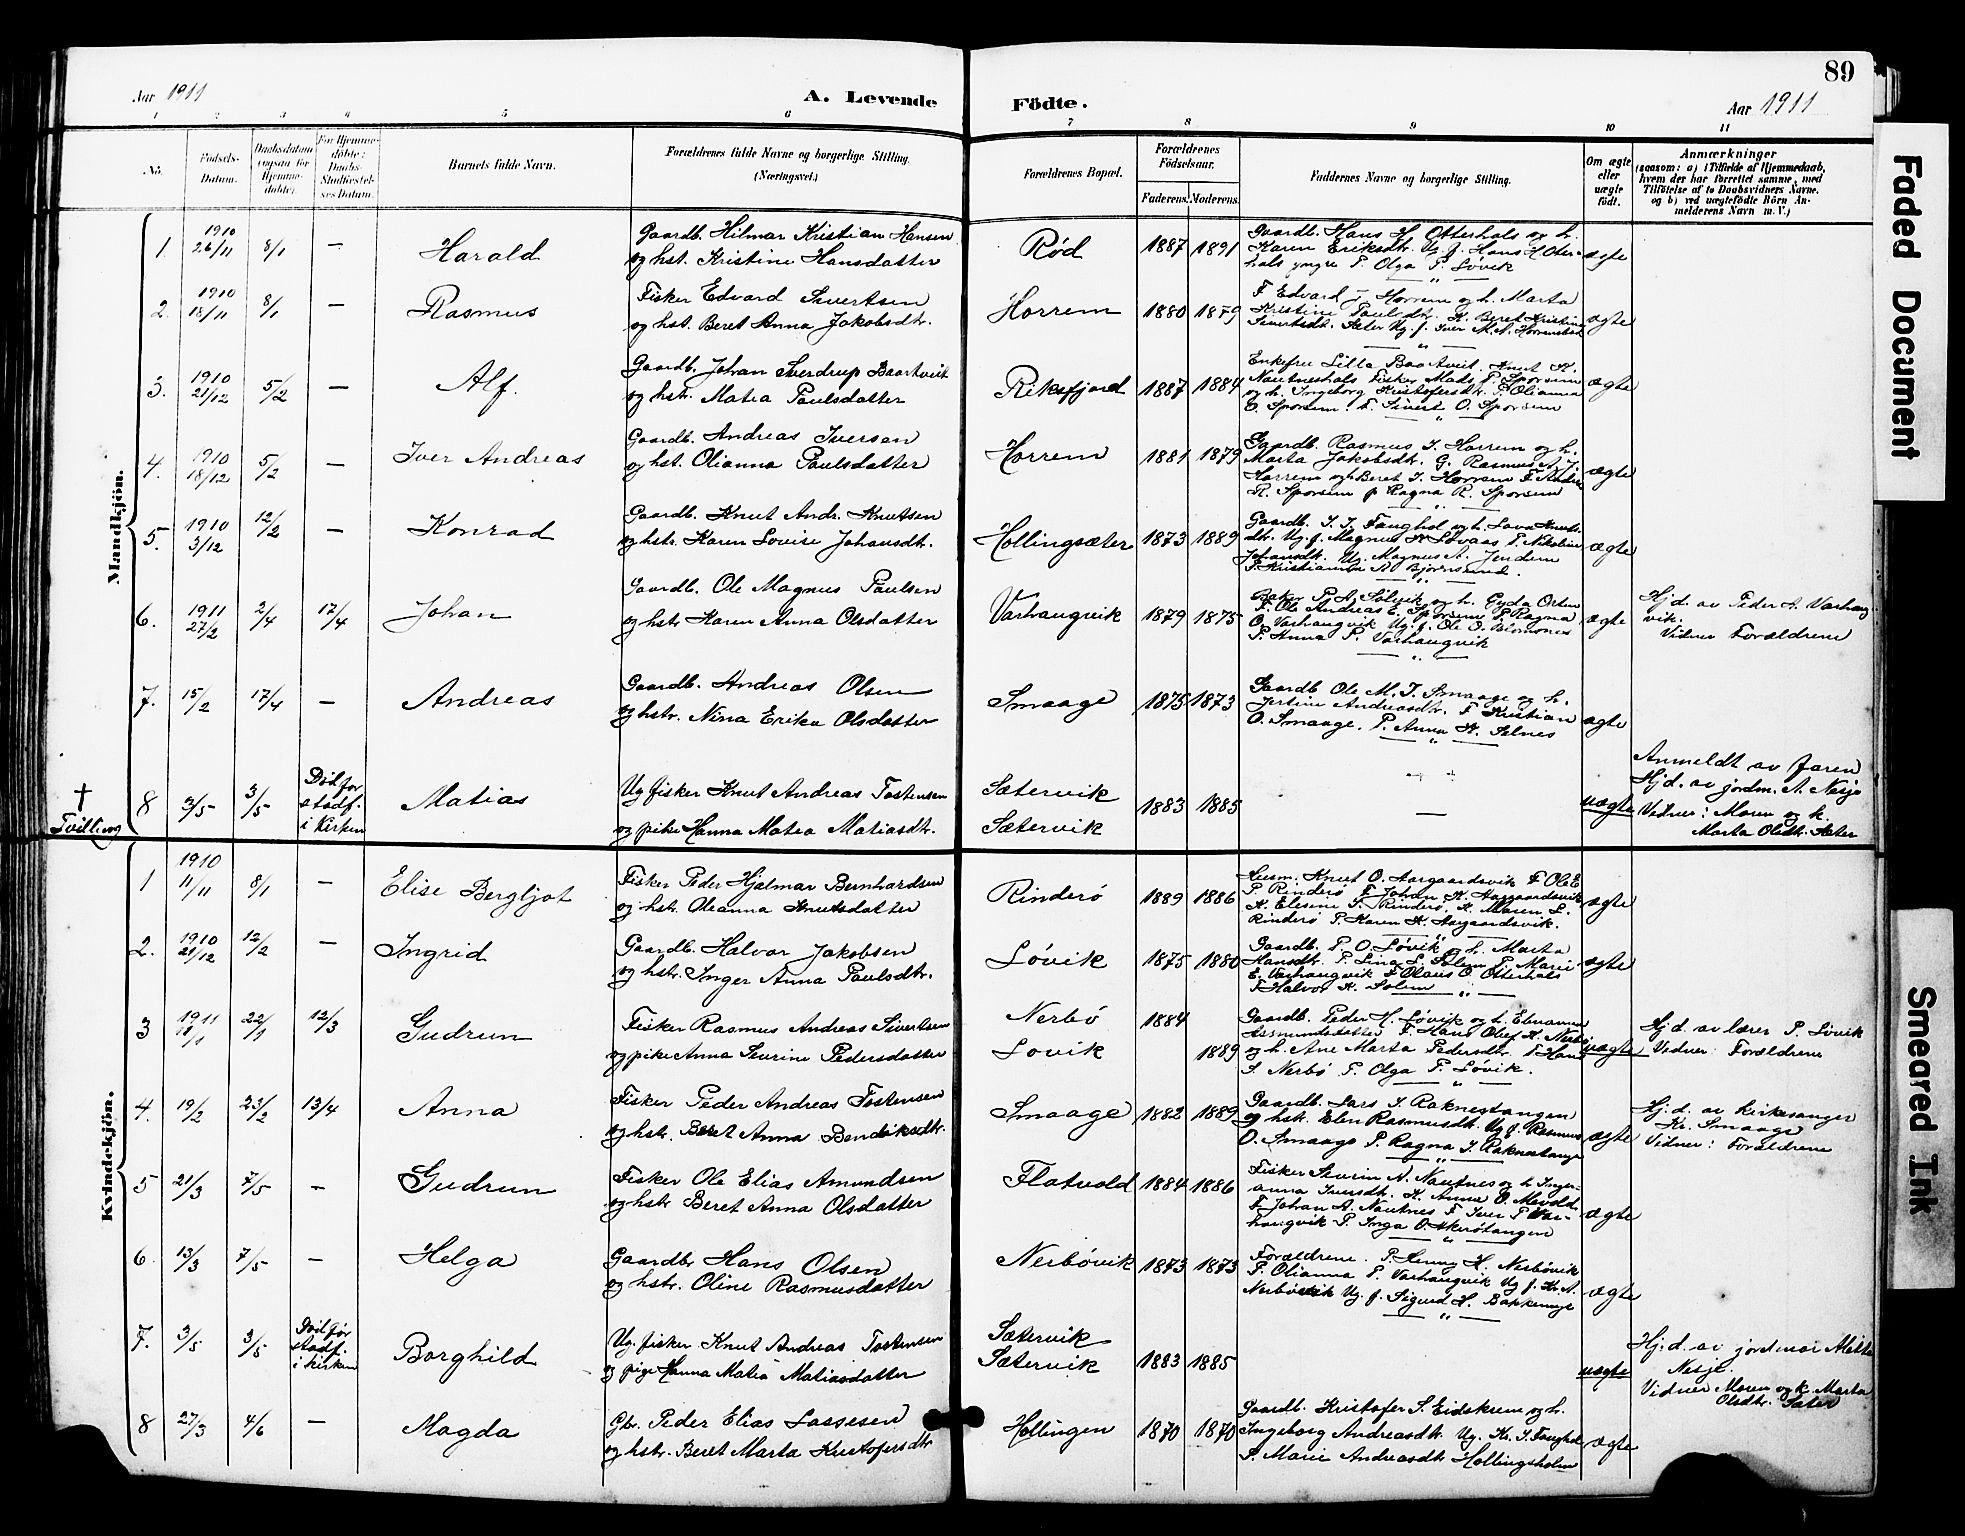 89
Aar 1911
A. Levende Födte.
Aar 1911
1 2 3 4 5 6 7 8 9 10 11
No.
Fødsels-Datum.
Daabsdatum (ogsaa for Hjemmedøbte).
For Hjemmedøbte: Daabs-Stadfæstelses Datum.
Barnets fulde Navn.
Forældrenes fulde Navne og borgerlige Stilling.
(Næringsvei.)
Forældrenes Bopæl.
Forældrenes Födselsaar.
Faderens. Moderens.
Faddernes Navne og borgerlige Stilling.
Om ægte eller uægte födt.
Anmærkninger
(saasom: a) i Tilfælde af Hjemmedaab,
hvem der har forrettet samme, med
Tilføielse af to Daabsvidners Navne,
og b) ved uægtefödte Börn Anmelderens Navn m. V.)
Mandkjön.
1. 1910 26/11 8/1 — Harald
Gaardb. Hilmar Kristian Hansen
og hst. Kristine Hansdatter
Rød 1887 1891
Gaardb. Hans H. Otterhals og h.
Karen Eriksdtr. Ug. f. Hans H. Oter-
hals yngre P. Olga P. Løvik
ægte
2. 1910 18/11 8/1 — Rasmus
Fisker Edvard Sivertsen
og hst. Beret Anna Jakobsdtr.
Horrem 1880 1879
F. Edvard J. Horrem og h. Marta
Kristine Paulsdtr. K. Beret Kristine
Sivertsdt. Sæter Ug. f. Iver M. A.
ægte
3. 1910 21/12 5/2 — Alf.
Gaardb. Johan Sverdrup Baartveit
og hstr. Matea Paulsdatter
Riksfjord 1887 1884
Enkefru Lilla Baartveit. Knut K.
Nautneshals Fisker Mads P. Sporsem
og h. Ingeborg Kristofersdtr. P. Olianna
O. Sporsem. F. Sivert O. Sporsem
ægte
4. 1910 18/12 5/2 — Iver Andreas
Gaardb. Andreas Iversen
og hst. Olianna Paulsdatter
Horrem 1881 1879
Gaardb. Rasmus I. Horrem og h.
Marta Jakobsdtr. G. Rasmus A. J.
Horrem og p. Beret I. Horrem F. Anders
R. Sporsem p Ragna R. Sporsem
ægte
5. 1910 3/12 12/2 — Konrad
Gaardb. Knut Andr. Knutsen
og hstr. Karen Lovise Johansdt.
Hollingsæter 1873 1889
Gaardb. I. I. Fanghol og h. Lava Knuts-
dtr. Ug. f. Magnus K. Løvaas P. Nikoline
Johansdtr. Ug. Magnus A. Jendem
P. Kristianna A. Bjørnsund.
ægte
6. 1911 27/2 2/4 17/4 Johan
Gaardb. Ole Magnus Paulsen
og hstr. Karen Anna Olsdatter
Varhaugvik 1879 1875
Baker P. A. Solvik og h. Gyda Orten
F. Ole Andreas E. Sporsem P. Ragna
O. Varhaugvik Ug. f. Ole O. Blomsnes
P. Anna P. Varhaugvik
ægte
Hj. d. av Peder A. Varhaug-
vik.
Vidner Forældrene
7. 15/2 17/4 — Andreas
Gaardb. Andreas Olsen
og hstr. Nina Erika Olsdatter
Smaage 1875 1873
Gaardb. Ole M. I. Smaage og h.
Jertine Andreasdtr. F. Kristian
O. Smaage. P. Anna K. Selnes
ægte
† Tvilling
8 3/5 3/5 Död før stadf. i kirken Matias
Ug. fisker Knut Andreas Tostensen
og pike Hanna Matea Matiasdt.
Sætervik
Sætervik
1883 1885 —
uægte
Anmeldt av faren
Hj d. av jordm. A. Nesje
Vidner: Moren og k.
Marta Olsdtr. Sæter
Kvindekjön.
1 1910 11/11 8/1 — Elise Bergljot
Fisker Peder Hjalmar Bernhardsen
og hstr. Oleanna Knutsdatter
Rinderö 1889 1886
Husm. Knut O. Aargaardsvik F Ole E
P. Rinderö F Johan K. Aargaardsvik
K. Elesine P. Rinderö. K. Maren L.
Rinderö P. Karen K. Aargaardsvik.
ægte
2. 1910 21/12 12/2 — Ingrid
Gaardb. Halvor Jakobsen
og hstr. Inger Anna Paulsdtr.
Lövik 1875 1880
Gaardb. P. O. Lövik og h. Marta
Hansdtr. P. Lina L. Solem P. Marie
E. Varhaugvik F Olaus O. Otterhals
F Halvor K. Solem
ægte
3 1911 11/1 22/1 12/3 Gudrun
Fisker Rasmus Andreas Sivertsen
og pike Anna Severine Pedersdatter
Nerbö 1884
Lovik 1889
Gaardb. Peder H. Lövik og h. Elenanna
Aasmundsdatter F. Hans Olef K. Nerbö
og h. Ane Marta Pedersdtr. F Hans
S. Nerbö P. Olga P. Lövik.
uægte
Hj d. av lærer P. Lövik
Vidner: Forældrene
4. 19/2 23/2 13/4 Anna
Fisker Peder Andreas Tostensen
og hstr. Beret Anna Bendiksdt.
Smaage 1882 1889
Gaardb. Lars I. Raknestangen
og hst. Elen Rasmusdt. Ug. f. Rasmus
O. Smaage P. Ragna I. Raknestange
ægte
Hj. d. av kirkesanger
Kr. Smaage
Vidner: Forældrene
5 21/3 7/5 — Gudrun
Fisker Ole Elias Amundsen
og hstr. Beret Anna Olsdatter
Flatvold 1884 1886
Fisker Severin A. Nautnes og h. Inger-
anna Iversdt. K. Anna O. Mevold.
F. Johan A. Nautnes F Iver P Var-
haugvik P. Inga O. Akerötangen
ægte
6. 13/3 7/5 — Helga
Gaardbr Hans Olsen
og hstr. Oline Rasmusdatter
Nerbövik 1873 1873
Forældrene. P. Henny H. Nerbövik
P. Olianna P. Varhaugvik Ug. f. Kr. A.
Nerbövik Ug. f. Sigurd H. Bakkemyr
ægte
7. 3/5 3/5 Död før stadf. i kirken Borghild
Ug. fisker Knut Andreas Tostensen
og pige Hanna Matea Matiasdatter
Sætervik
Sætervik
1883 1885
uægte
Hj: d. av jordmor
Nesje.
Vidner Moren og k. Marta
Olsdtr. Sæter
8 27/3 4/6 — Magda
Gbr. Peder Elias Lassesen
og hstr. Beret Marta Kristofersdtr
Hollingen 1870 1870
Gaardb. Kristofer S. Eidskrem og h.
Ingeborg Andreasdtr. Ug. Kr. I. Fanghol
P. Marie Andreasdtr Hollingsholm
ægte
Faded Document
Smeared Ink